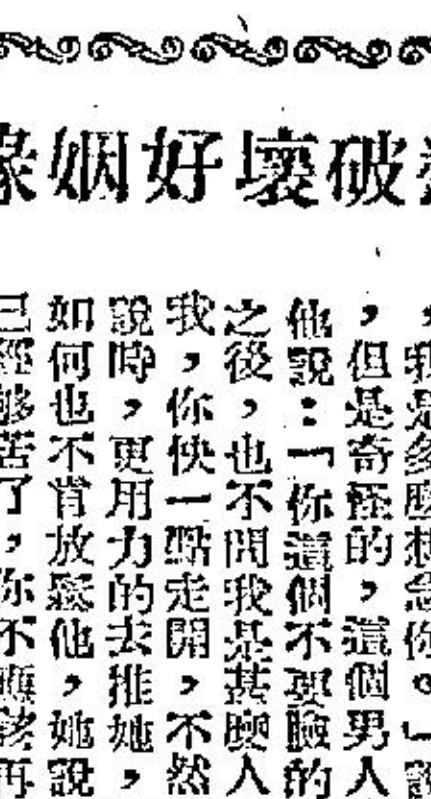 破壞好姻緣
，我是多麼想念你。」說
，但是奇怪的，這個男人
他說：「你這個不要臉的
之後，也不問我是甚麼人
我，你快一點走開，不然
說時，更用力的去推她，
如何也不肯放鬆他，她說
已經够苦了，你不應該再